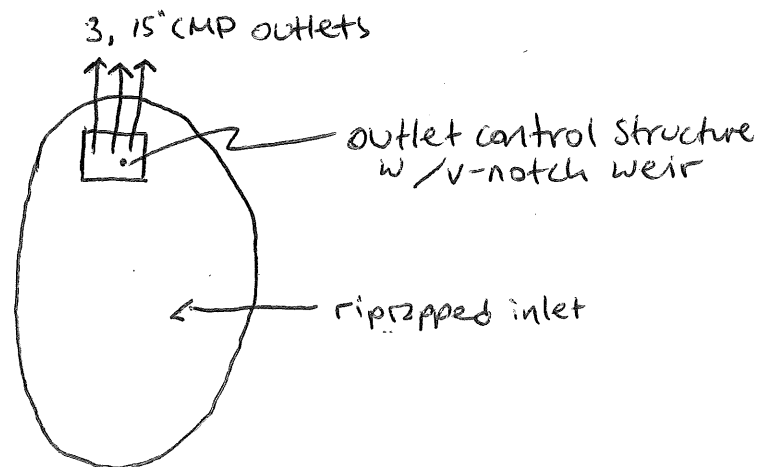 3, 15" CMP outlets
outlet control structure
w/v-notch weir
riprapped inlet